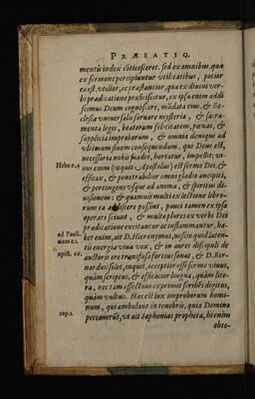 PRÆFATIO.
mentis index conticesceret. sed ex omnibus, quæ
ex sermone percipiuntur vtilitatibus, potior
ea est, vtilior, ac præstantior, quæ ex diuini ver-
bi prædicatione proficiscitur, ex ipsa enim addi
scimus Deum cognoscere, mãdata eius, & Ec-
clesiæ vniuersalis seruare mysteria, & sacra-
menta legis, beatorum felicitatem, pœnas, &
supplicia improborum, & omnia denique ad
vltimum finem consequendum, quæ Deus est,
necessaria nobis suadet, hortatur, impellit. vi-
Hebr. 4.
uus enim (inquit Apostolus) est sermo Dei, &
efficax, & penetrabilior omni gladio ancipiti,
& pertingens vsque ad animæ, & spiritus di-
uisionem: & quamuis multi ex lectione libro-
rum ea possint, pauci tamen ex ipsa
operari sciunt, & multo plures ex verbo Dei
prædicatione excitantur ac inflammantur, ha-
ad Pauli-
num c. 1.
bet enim, ait D. Hieronymus, nescio quid laten-
tis energiæ viua vox, & in aures discipuli de
auctoris ore transfusa fortius sonat, & D. Ber-
epist. 66.
nardus solet, inquit, acceptior esse sermo viuus,
quàm scriptus, & efficacior lingua, quàm lite-
ra, nec tam affectum exprimit scribẽs digitus,
quàm vultus. Hæc est lux improborum homi-
num, qui ambulant in tenebris, quia Domino
cap. 1.
peccauerũt, vt ait Sophonias propheta, hi enim
obte-